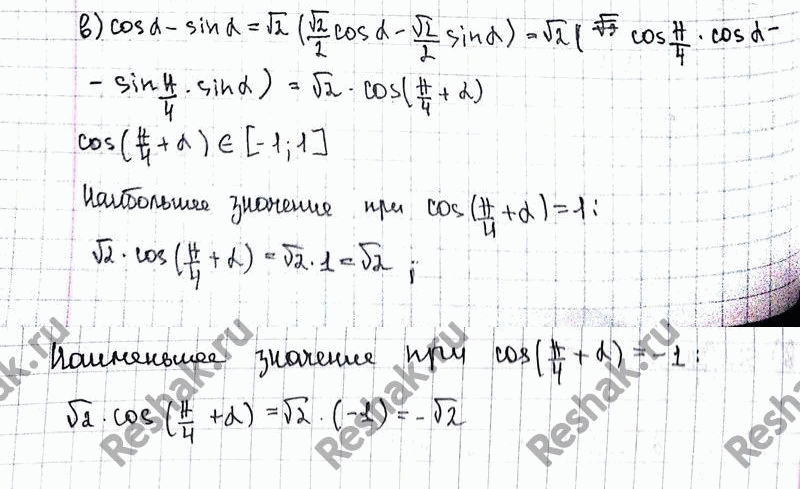 в) cosα - sinα = √2 (√2/2 cosα - √2/2 sinα) = √2 ( cos π/4 · cosα -
- sin π/4 · sinα) = √2 · cos(π/4 + α)
cos(π/4 + α) ∈ [-1; 1]
Наибольшее значение при cos(π/4 + α) = 1:
√2 · cos(π/4 + α) = √2 · 1 = √2 ;
Наименьшее значение при cos(π/4 + α) = -1:
√2 · cos(π/4 + α) = √2 · (-1) = -√2
Reshak.ru
Reshak.ru
Reshak.ru
Reshak.ru